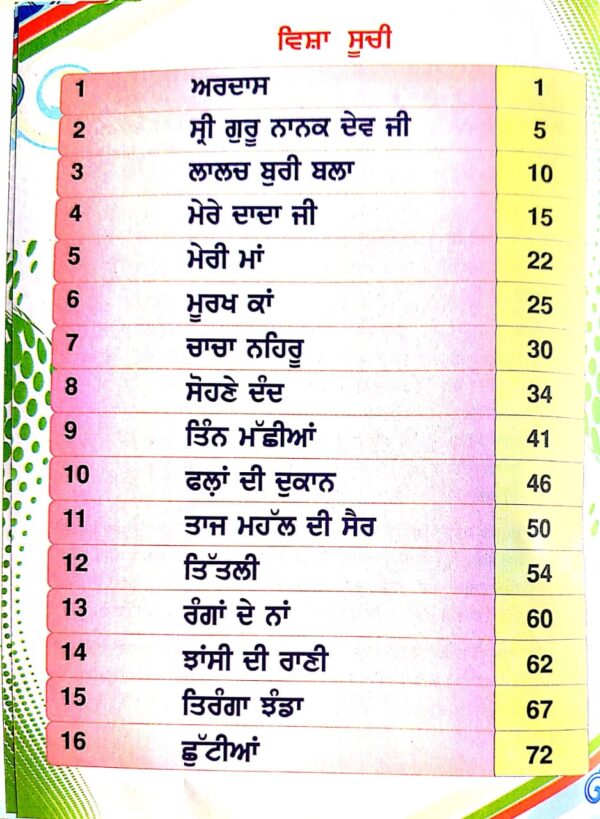 ਵਿਸ਼ਾ ਸੂਚੀ
1 ਅਰਦਾਸ 1
2 ਸ੍ਰੀ ਗੁਰੂ ਨਾਨਕ ਦੇਵ ਜੀ 5
3 ਲਾਲਚ ਬੁਰੀ ਬਲਾ 10
4 ਮੇਰੇ ਦਾਦਾ ਜੀ 15
5 ਮੇਰੀ ਮਾਂ 22
6 ਮੂਰਖ ਕਾਂ 25
7 ਚਾਚਾ ਨਹਿਰੂ 30
8 ਸੋਹਣੇ ਦੰਦ 34
9 ਤਿੰਨ ਮੱਛੀਆਂ 41
10 ਫਲਾਂ ਦੀ ਦੁਕਾਨ 46
11 ਤਾਜ ਮਹੱਲ ਦੀ ਸੈਰ 50
12 ਤਿੱਤਲੀ 54
13 ਰੰਗਾਂ ਦੇ ਨਾਂ 60
14 ਝਾਂਸੀ ਦੀ ਰਾਣੀ 62
15 ਤਿਰੰਗਾ ਝੰਡਾ 67
16 ਛੁੱਟੀਆਂ 72